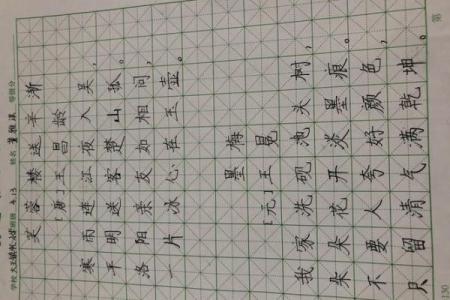 学校 班级 姓名
芙蓉楼送辛渐
[唐]王昌龄
寒雨连江夜入吴，
平明送客楚山孤。
洛阳亲友如相问，
一片冰心在玉壶。
墨梅
[元]王冕
我家洗砚池头树，
朵朵花开淡墨痕。
不要人夸好颜色，
只留清气满乾坤。
130 第